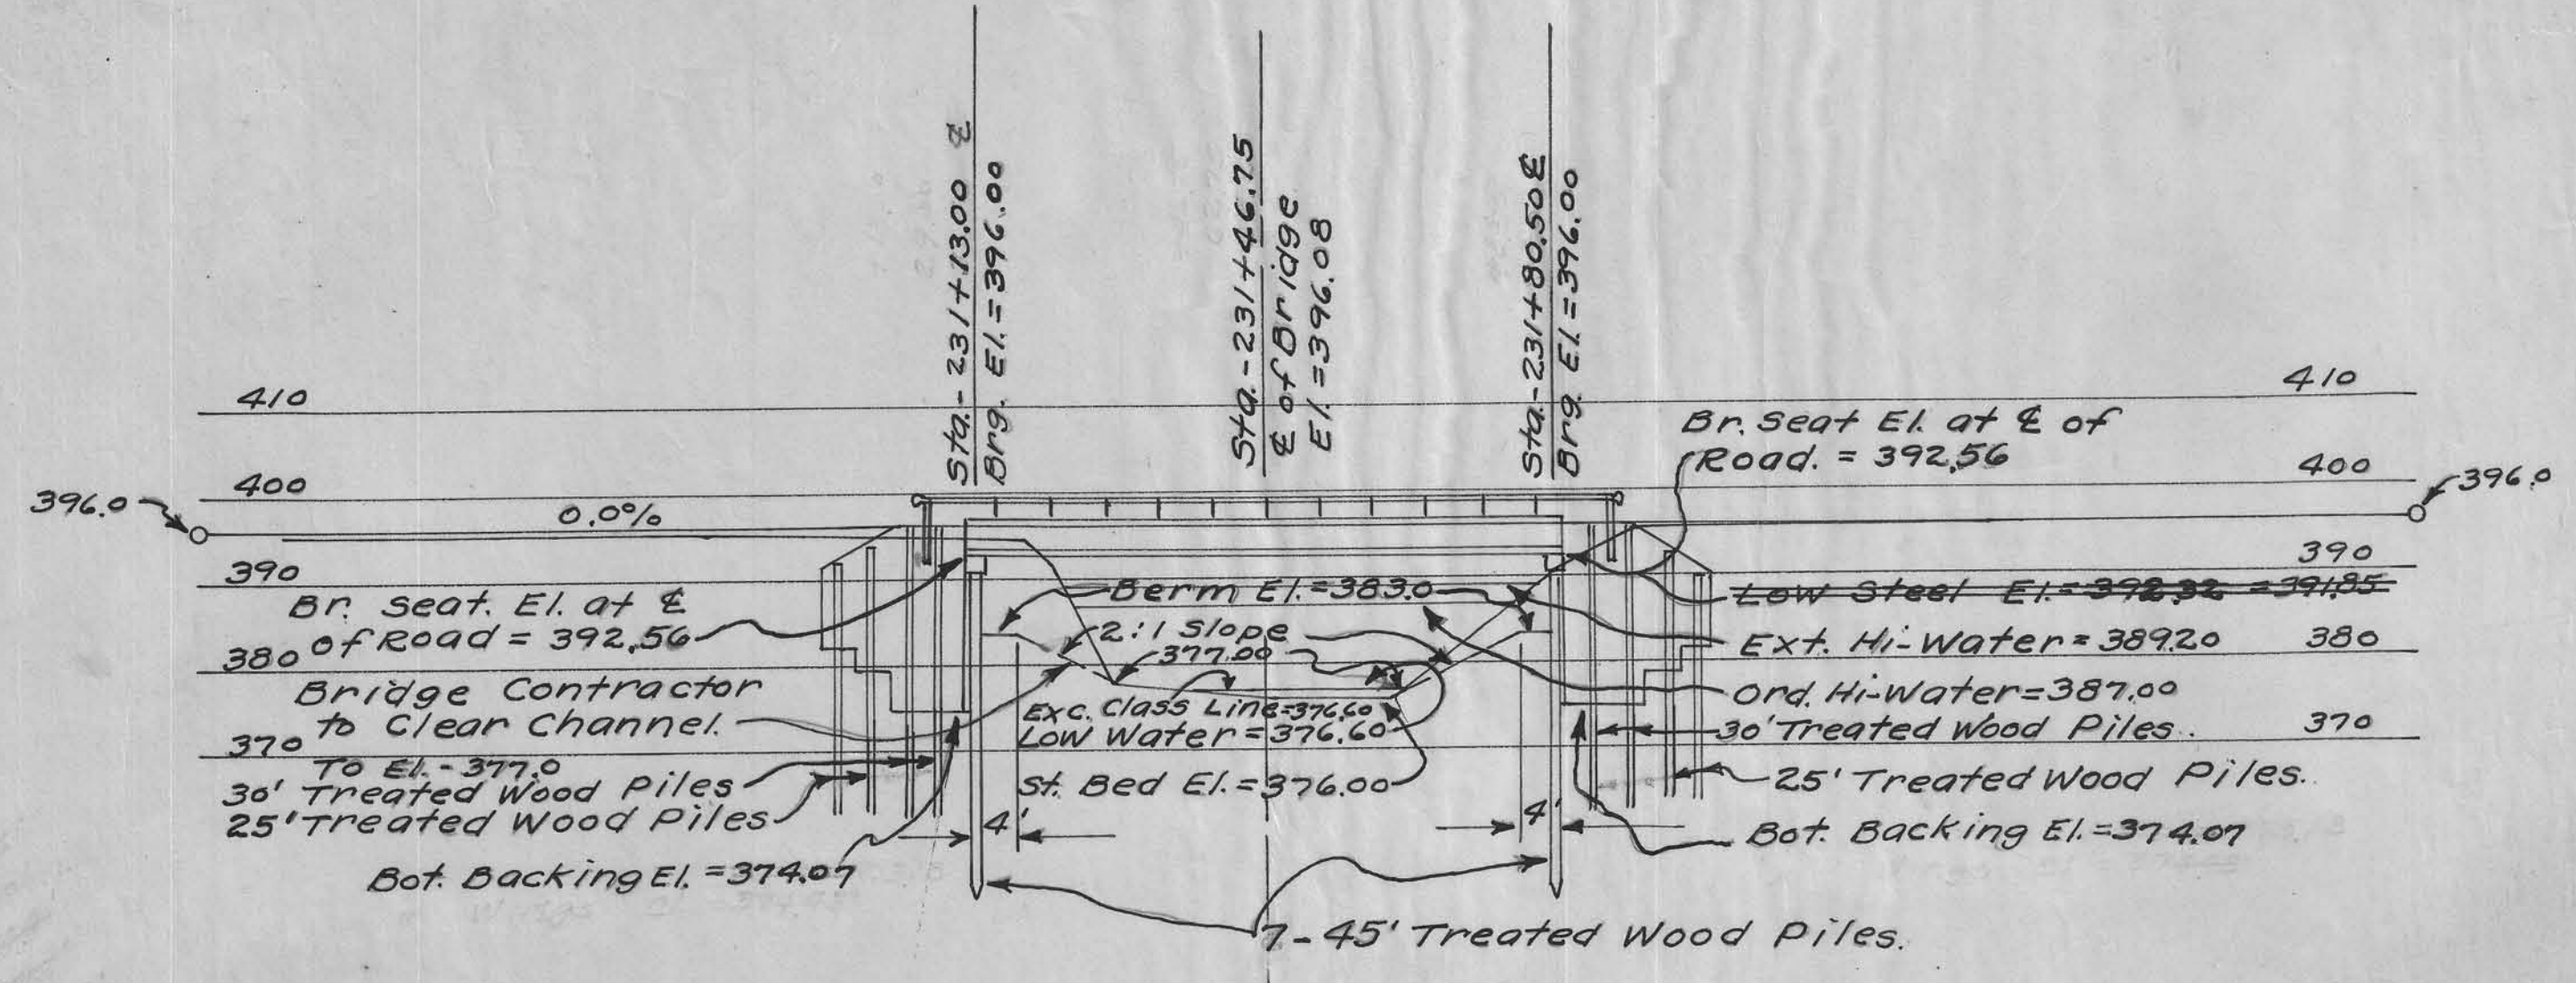 Sta.-231+13.00 ℄
Brg. El.=396.00
Sta.-231+46.75
℄ of Bridge
El.=396.08
Sta.-231+80.50 ℄
Brg. El.=396.00
410
410
Br. Seat El. at ℄ of
Road. = 392.56
400
400
396.0
396.0
0.0%
390
390
Low Steel El.=392.32 =391.85
Berm El.=383.0
Br. Seat. El. at ℄
of Road = 392.56
2:1 Slope
377.00
Ext. Hi-Water=389.20
380
380
Bridge Contractor
to Clear Channel.
To El.-377.0
Exc. Class Line=376.60
Low Water=376.60
Ord. Hi-Water=387.00
370
370
30' Treated Wood Piles.
30' Treated Wood Piles
25' Treated Wood Piles
St. Bed El.=376.00
25' Treated Wood Piles.
4'
4'
Bot. Backing El.=374.07
Bot. Backing El.=374.07
7-45' Treated Wood Piles.